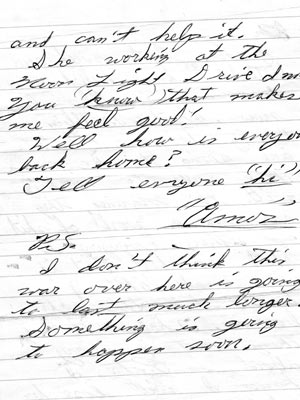 and can't help it.
She working at the
Moon Light Drive Inn
You (know) that makes
me feel good!
Well how is everyon
back home?
Tell everyone "hi"
"Amos"
P.S.
I don't think this
war over here is going
to last much longer.
Something is going
to happen soon.